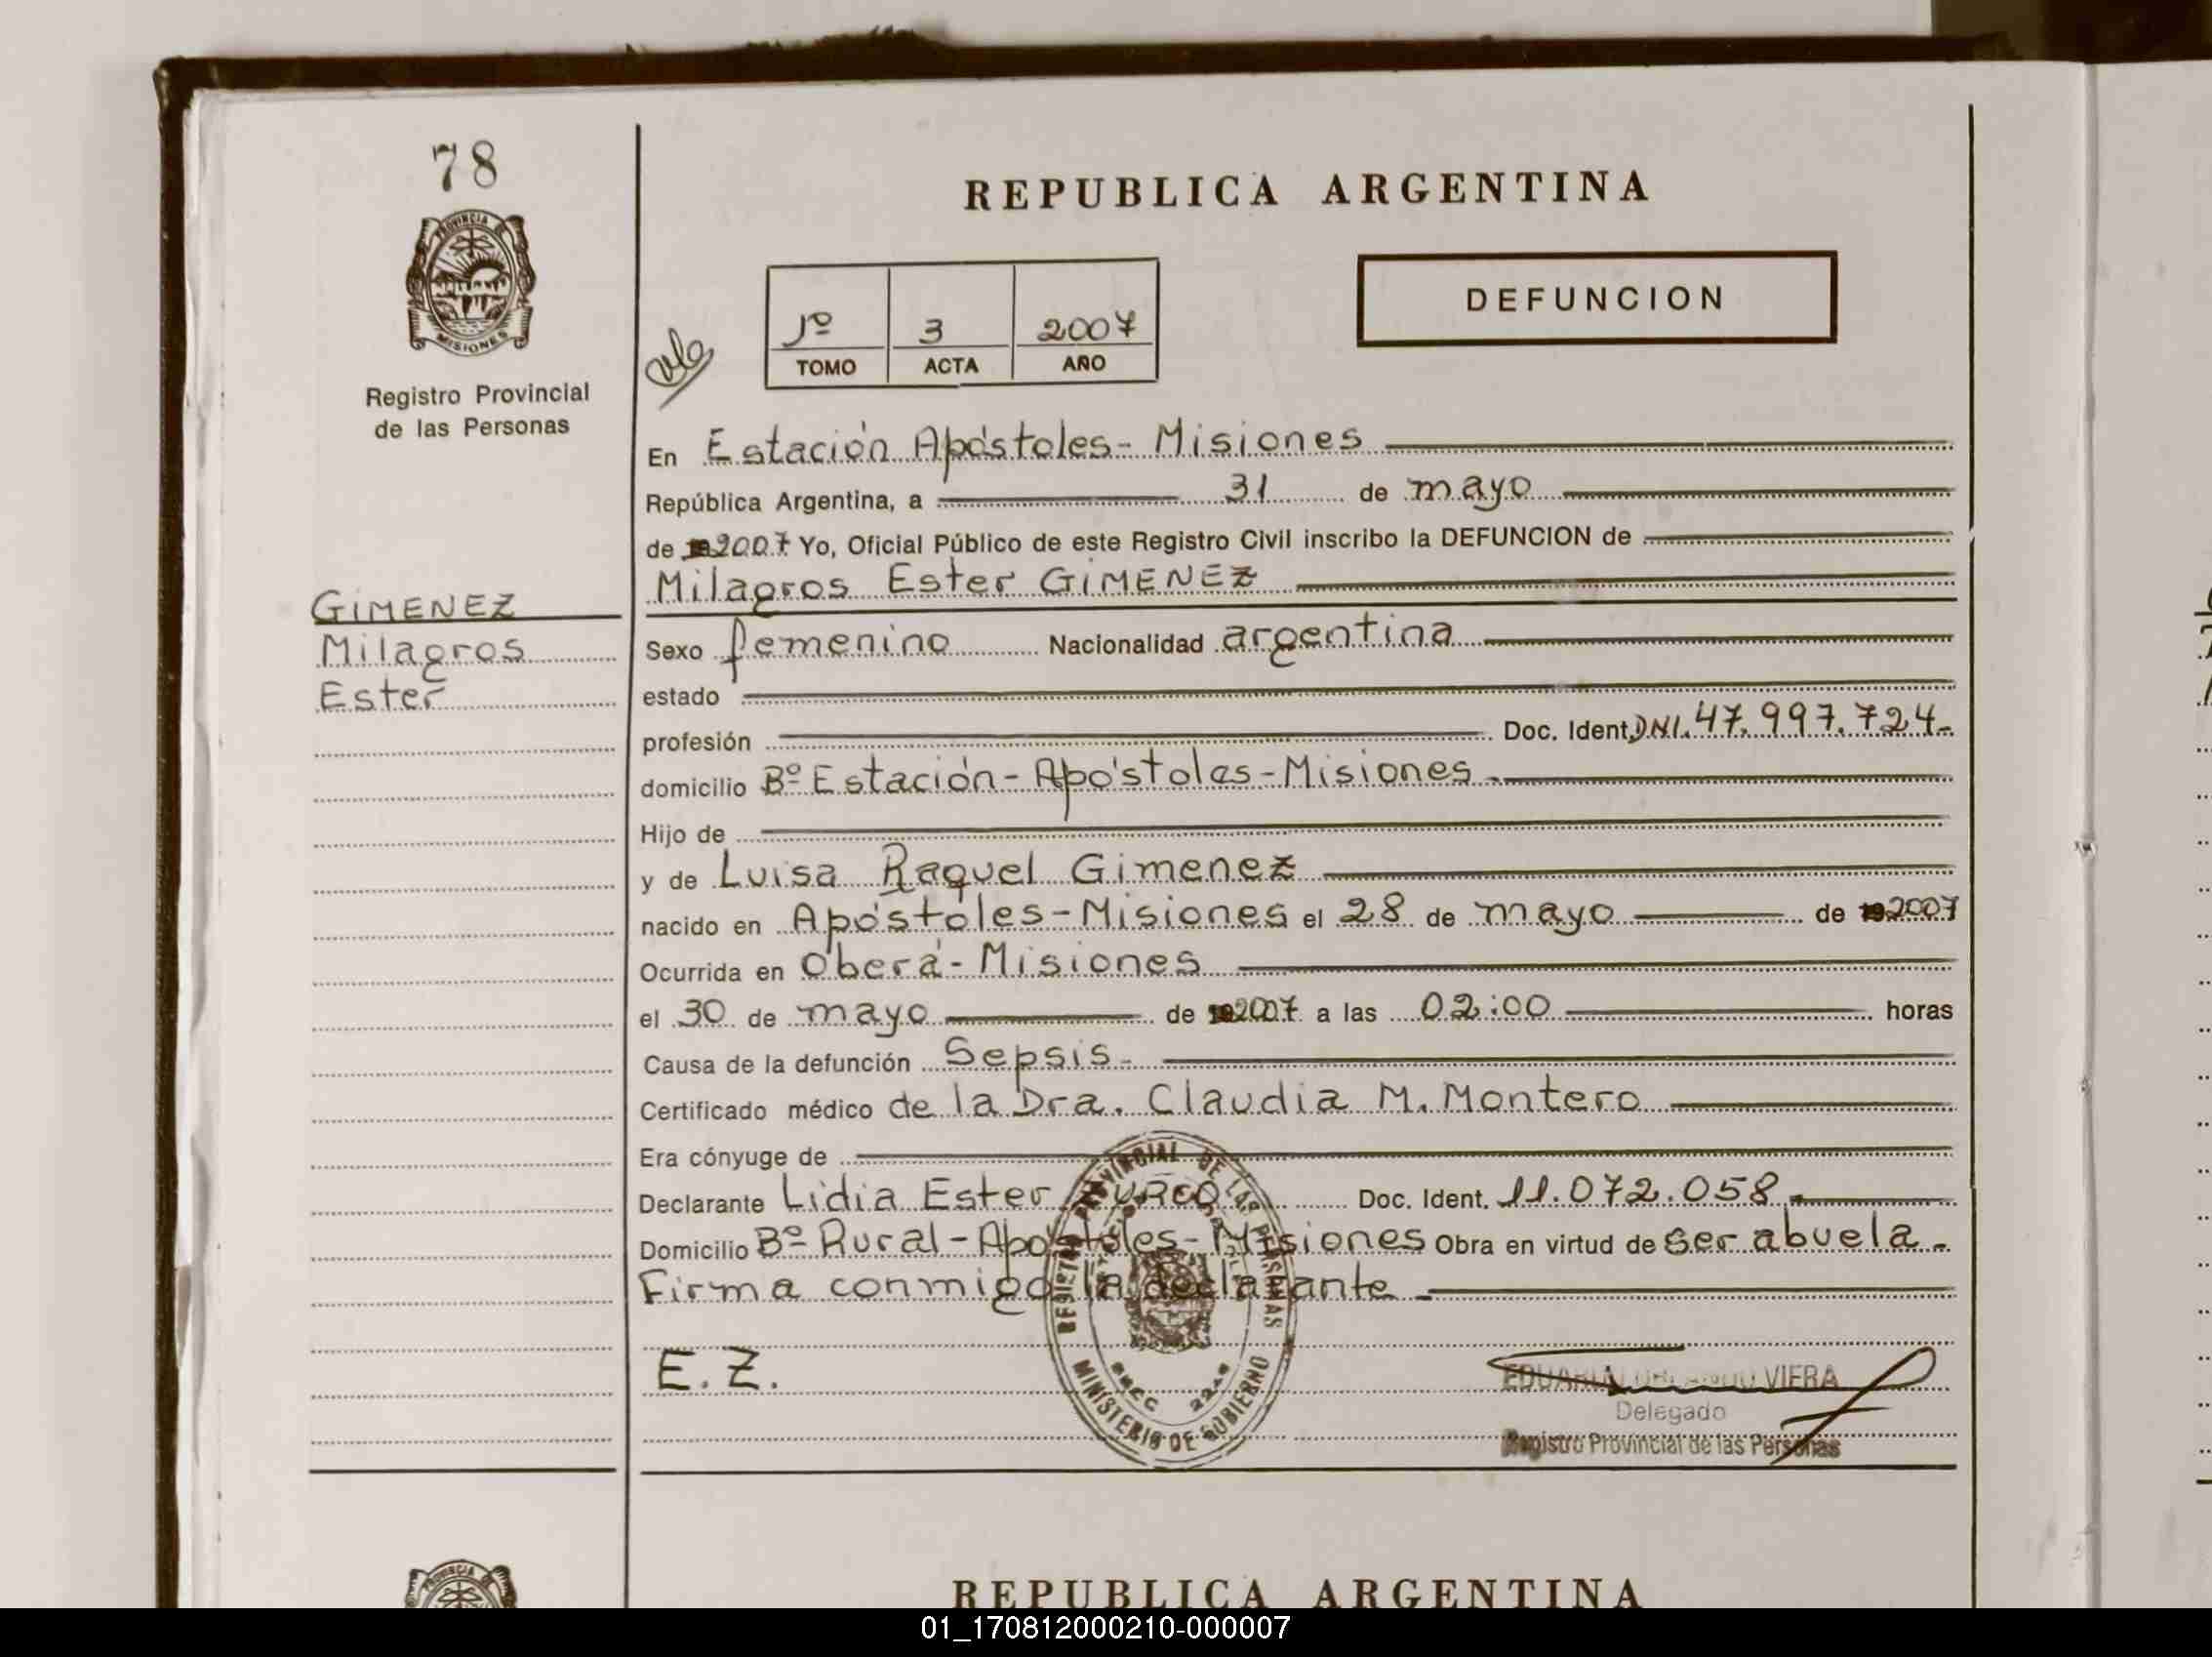 78
PROVINCIA DE
MISIONES
Registro Provincial
de las Personas
REPUBLICA ARGENTINA
1º 3 2007
TOMO ACTA AÑO
DEFUNCION
En Estación Apóstoles - Misiones
República Argentina, a 31 de mayo
de 2007 Yo, Oficial Público de este Registro Civil inscribo la DEFUNCION de
Milagros Ester GIMENEZ
GIMENEZ
Milagros
Ester
Sexo femenino Nacionalidad argentina
estado
profesión Doc. Ident. DNI. 47.997.724-
domicilio Bº Estación - Apóstoles - Misiones -
Hijo de
y de Luisa Raquel Gimenez
nacido en Apóstoles - Misiones el 28 de mayo de 2007
Ocurrida en Oberá - Misiones
el 30 de mayo de 2007 a las 02:00 horas
Causa de la defunción Sepsis -
Certificado médico de la Dra. Claudia M. Montero
Era cónyuge de
Declarante Lidia Ester Doc. Ident. 11.072.058 -
Domicilio Bº Rural - Apóstoles - Misiones Obra en virtud de ser abuela -
Firma conmigo la declarante -
E. Z.
REGISTRO PROVINCIAL DE LAS PERSONAS
MINISTERIO DE GOBIERNO
EDUARDO ORLANDO VIERA
Delegado
Registro Provincial de las Personas
PROVINCIA DE
REPUBLICA ARGENTINA
01_170812000210-000007